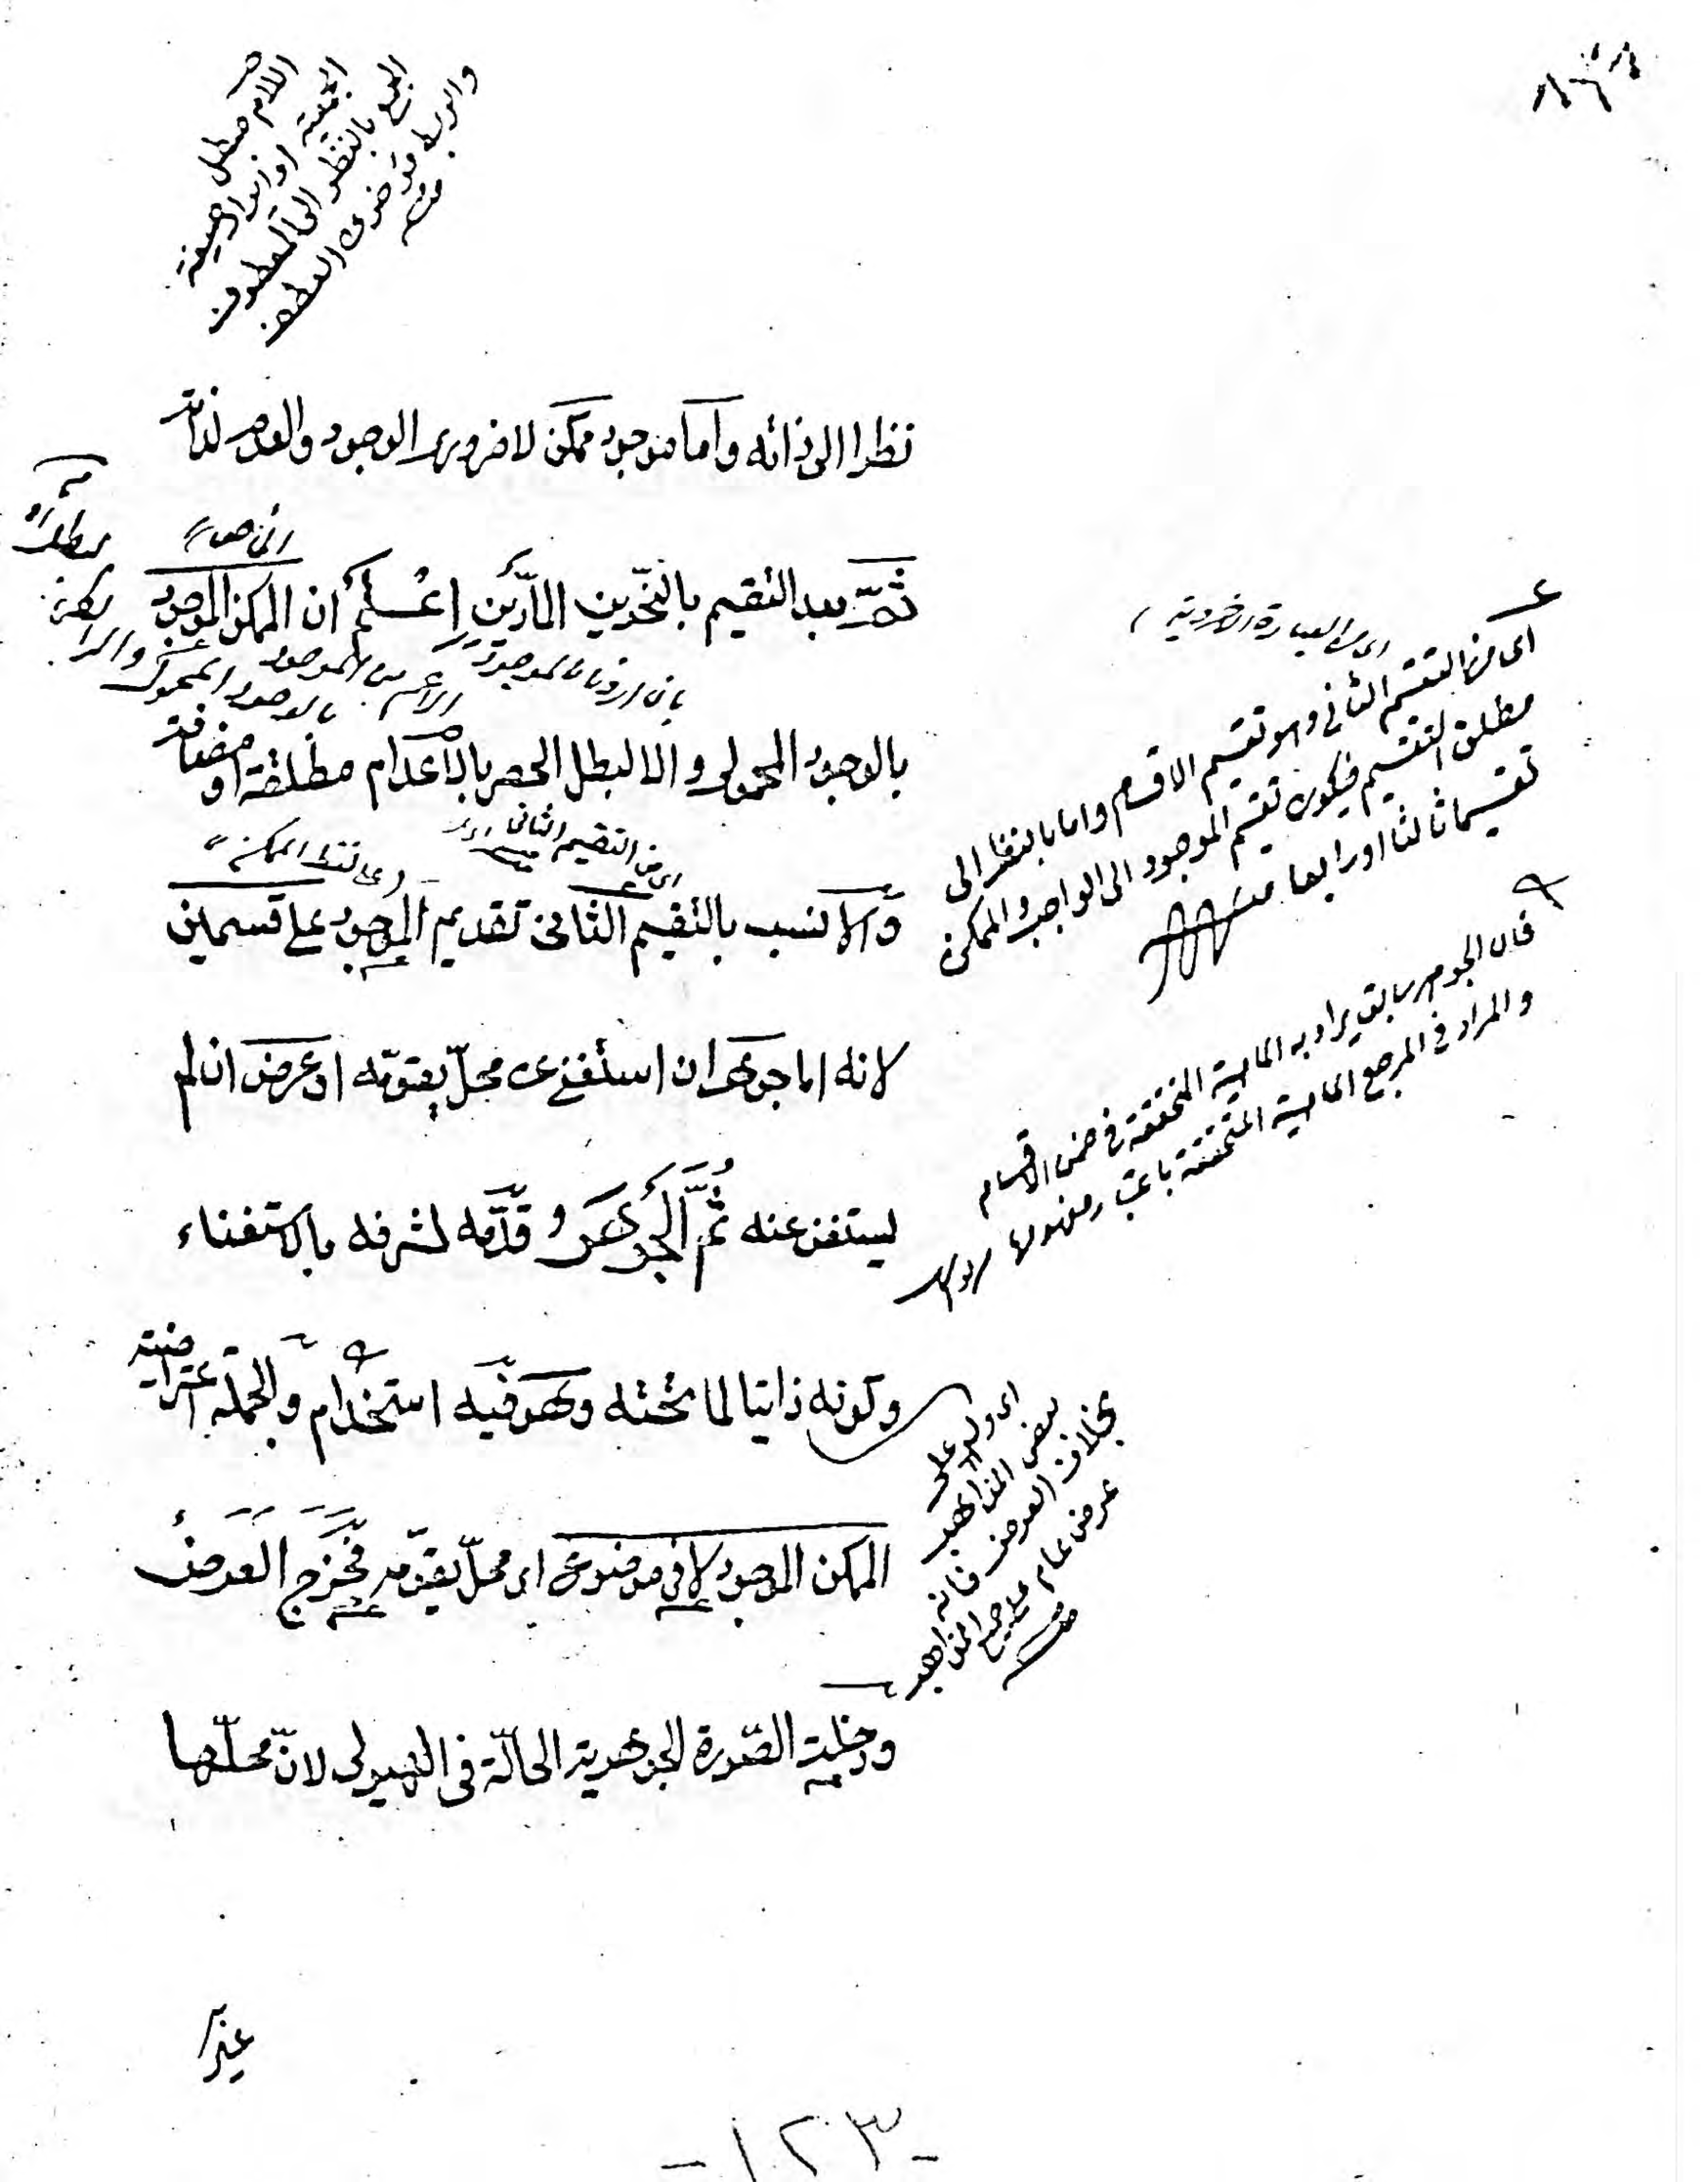 اللام مبطل
الجمعية او
الجمع بالنظر الى المعطوف
نظرا الى ذاته واما موجود ممكن لا ضرورى الوجود والعدم لذاته
ثمّ بعد التقسيم بالنحوين المارّين اعلم ان الممكن الموجود
بالوجود المحمولى والا لبطل الحصر بالأعدام مطلقة او مضافة
اى من التقسيم الثانى
والانسب بالتقسيم الثانى تقديم الموجود على قسمين
لانه اما جوهر ان استغنى عن محلّ يقوّمه او عرض ان لم
يستغن عنه ثُمَّ الجَوهَر وقدّمه لشرفه بالاستغناء
وكونه ذاتيا لما تحته وهو فيه استخدام والجملة اعتراضية
الممكن الموجود لا فى موضوع اى محلّ يقوّمه فخَرَج العَرضُ
ودخلت الصّورة الجوهرية الحالّة فى الهيولى لانّ محلّها
اى من التقسيم الثانى وهو تقسيم الاقسام واما بالنظر الى
مطلق التقسيم فيكون تقسيم الموجود الى الواجب والممكن
تقسيما ثالثا او رابعا منه
فان الجوهر سابق يراد به الماهية المتحققة فى ضمن الاقسام
والمراد فى المرجع الماهية المتحققة باعتبار
اى ولو على
بعض المذاهب
بخلاف العرض فانه
عرض عام على جميع المذاهب
منه
غير
-١٢٣-